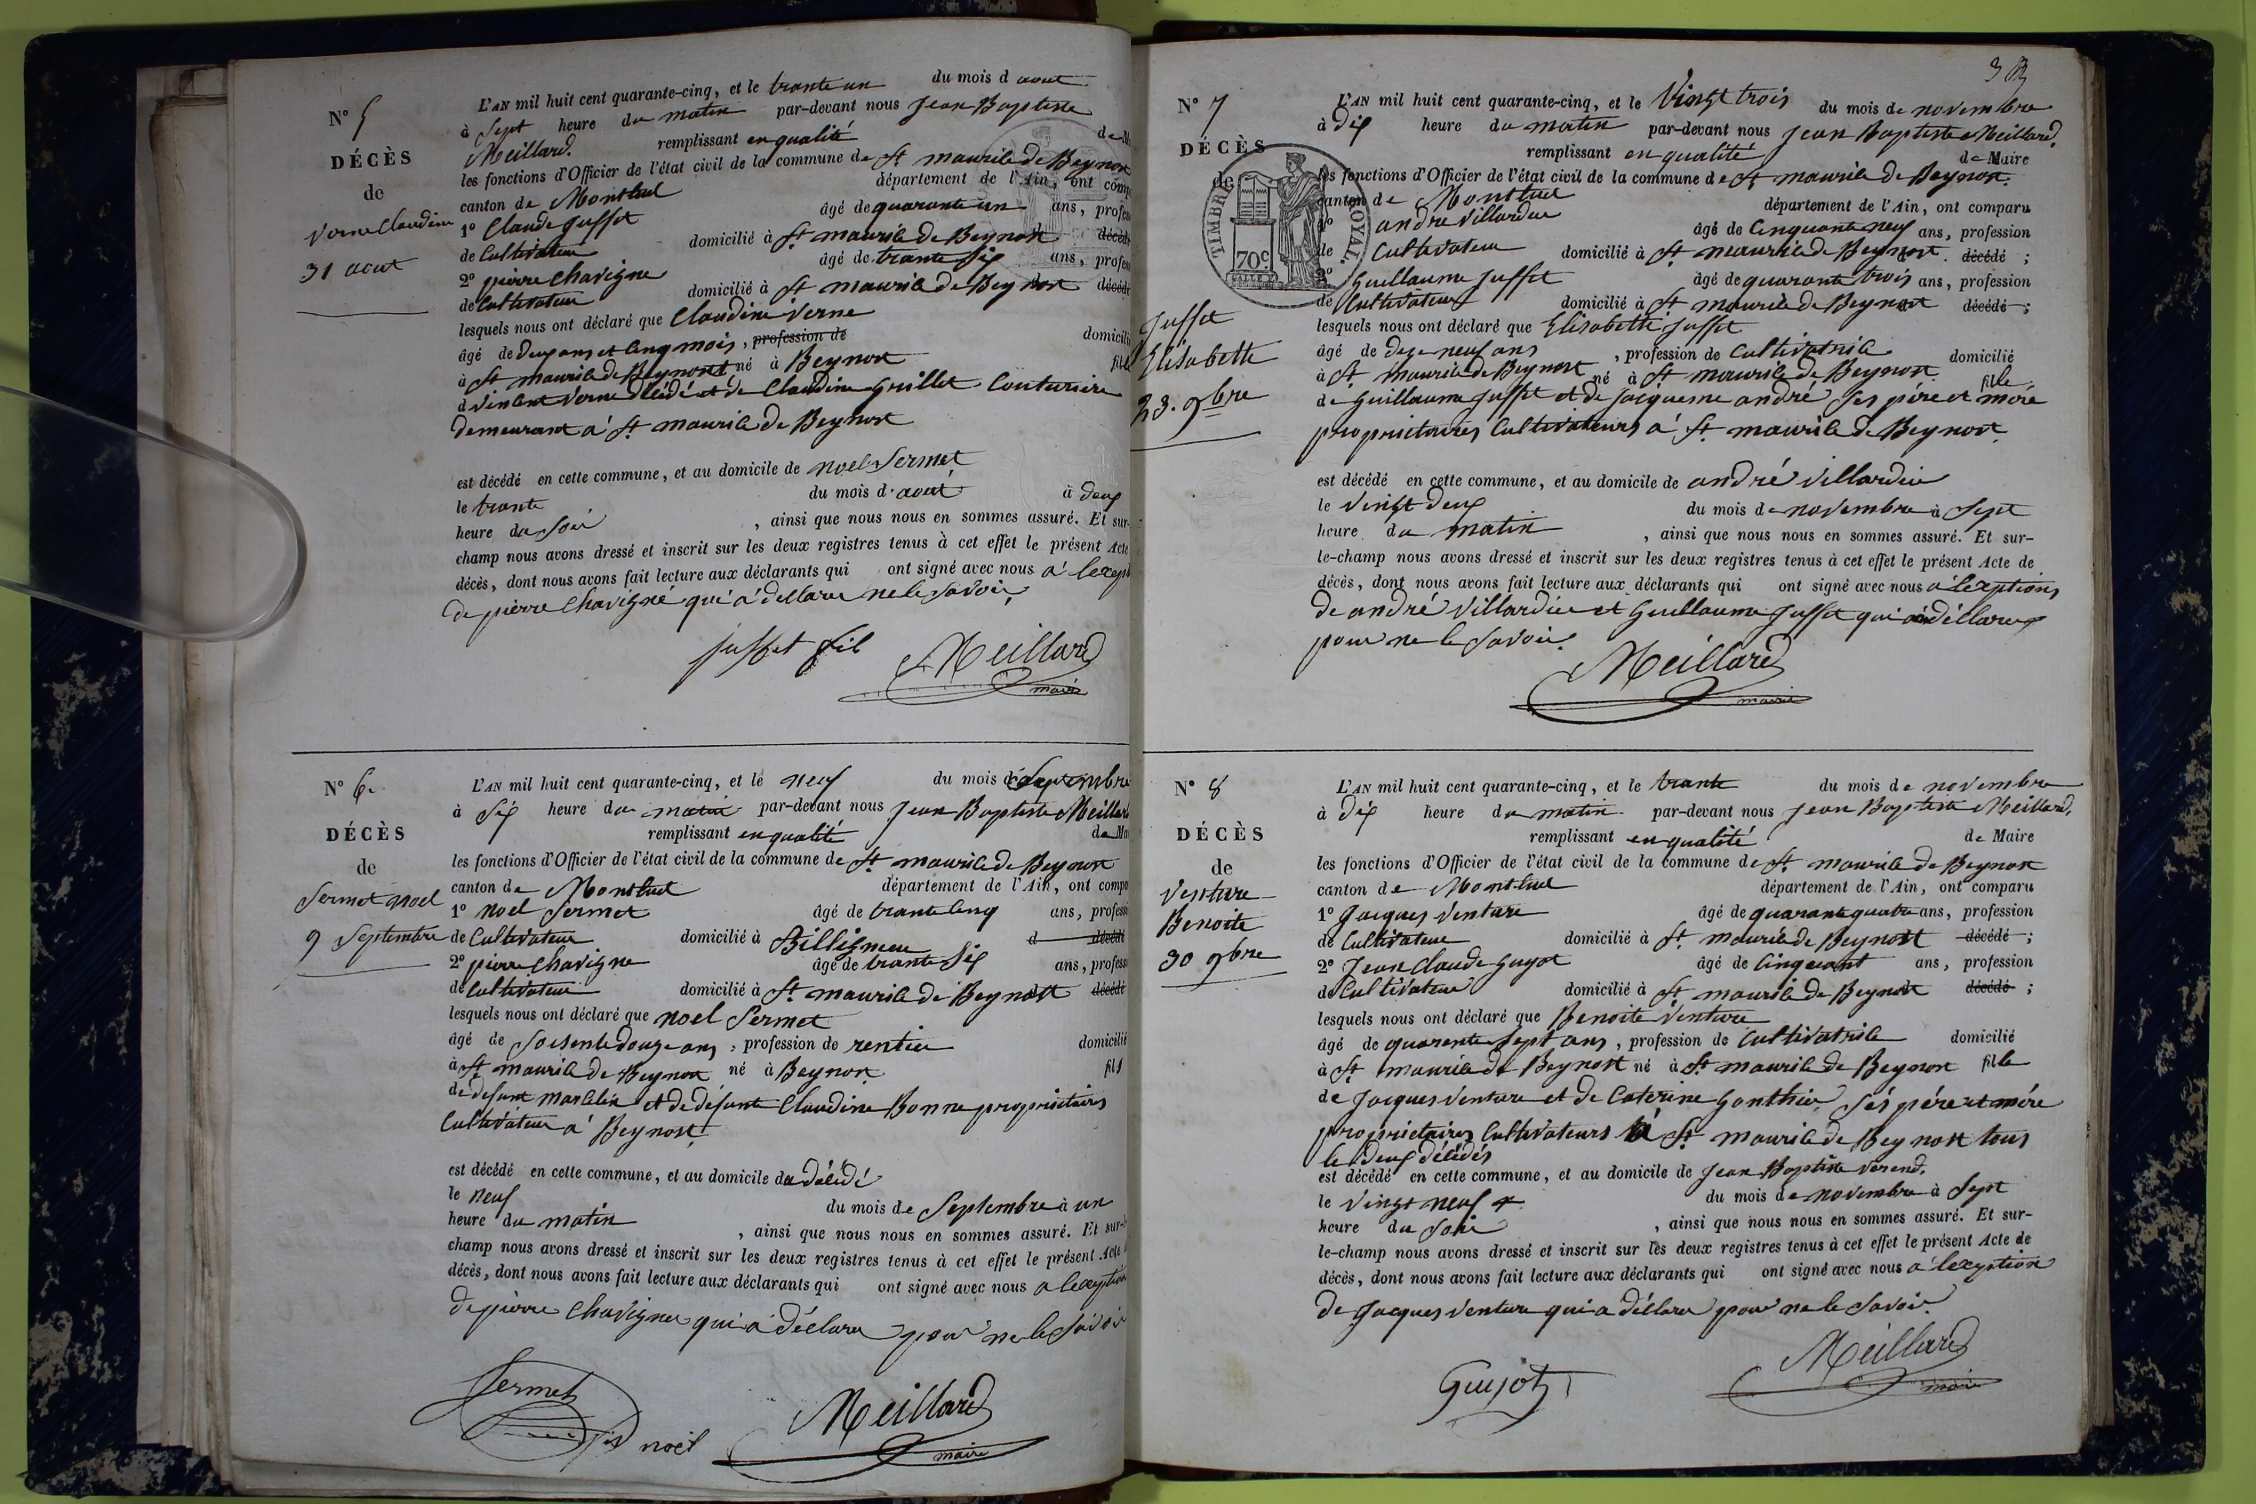 N° 5
DÉCÈS
de
Verne Claudine
31 aout
L'AN mil huit cent quarante-cinq, et le trante un du mois d aout
à Sept heure du matin par-devant nous Jean Baptiste
Meillard. remplissant en qualité de M
les fonctions d'Officier de l'état civil de la commune de St maurice de Beynost
canton de Montluel département de l'Ain, ont comp
1° Claude Juffet âgé de quarante un ans, profess
de Cultivateur domicilié à St maurice de Beynost décédé
2° pierre Chavigne âgé de trante six ans, profess
de Cultivateur domicilié à St maurice de Beynost décédé
lesquels nous ont déclaré que Claudine Verne
âgé de deux ans et cinq mois, profession de domicilié
à St maurice de Beynost né à Beynost fille
d vincent Verne décédé et de Claudine Grillet Couturiere
demeurant à St maurice de Beynost
est décédé en cette commune, et au domicile de noel Sermet
le trante du mois d'aout à deux
heure du Soir , ainsi que nous nous en sommes assuré. Et sur-
champ nous avons dressé et inscrit sur les deux registres tenus à cet effet le présent Acte
décès, dont nous avons fait lecture aux déclarants qui ont signé avec nous a lexept
de pierre Chavigné qui a déllare ne le Savoir
juffet fil Meillard
maire
N° 6.
DÉCÈS
de
Sermet noel
9 Septembre
L'AN mil huit cent quarante-cinq, et le neuf du mois de Septembre
à Six heure du matin par-devant nous Jean Baptiste Meillard
remplissant en qualité de Mai
les fonctions d'Officier de l'état civil de la commune de St maurice de Beynost
canton de Montluel département de l'Ain, ont compa
1° noel Sermet âgé de trante cinq ans, professi
de Cultivateur domicilié à Billigneu d décédé
2° pierre Chavigne âgé de trante Six ans, profess
de Cultivateur domicilié à St maurice de Beynost décédé
lesquels nous ont déclaré que noel Sermet
âgé de Soisente douze ans, profession de rentier domicilié
à St maurice de Beynost né à Beynost fils
de defunt Marcelin et de défunte Claudine Bonne proprietaires
Cultivateur a Beynost
est décédé en cette commune, et au domicile du décédé
le neuf du mois de Septembre à un
heure du matin , ainsi que nous nous en sommes assuré. Et sur-l
champ nous avons dressé et inscrit sur les deux registres tenus à cet effet le présent Acte
décès, dont nous avons fait lecture aux déclarants qui ont signé avec nous a lexeption
de pierre Chavigne qui a déclare pour ne le Savoir
Sermet
noël Meillard
maire
N° 7
DÉCÈS
de
Juffet
Elisabette
23. 9bre
TIMBRE ROYAL
70 C
L'AN mil huit cent quarante-cinq, et le Vingt trois du mois de novembre
à dix heure du matin par-devant nous Jean Baptiste Meillard.
remplissant en qualité de Maire
les fonctions d'Officier de l'état civil de la commune de St maurice de Beynost.
canton de Montluel département de l'Ain, ont comparu
1° andre Villardier âgé de Cinquante neuf ans, profession
de Cultivateur domicilié à St maurice de Beynost. décédé ;
2° Guillaume Juffet âgé de quarante trois ans, profession
de Cultivateur domicilié à St maurice de Beynost décédé ;
lesquels nous ont déclaré que Elisabette Juffet
âgé de deze neuf ans , profession de Cultivatrice domicilié
à St maurice de Beynost né à St maurice de Beynost fille
de Guillaume Juffet et de Jacqueme andré Ses père et mere
proprietaires Cultivateurs a St maurice de Beynost.
est décédé en cette commune, et au domicile de andré Villardier
le Vingt deux du mois de novembre à Sept
heure du matin , ainsi que nous nous en sommes assuré. Et sur-
le-champ nous avons dressé et inscrit sur les deux registres tenus à cet effet le présent Acte de
décès, dont nous avons fait lecture aux déclarants qui ont signé avec nous a lexeptions
de andré Villardier et Guillaume Juffet qui déllare
pour ne le Savoir.
Meillard
maire
N° 8
DÉCÈS
de
Venture
Benoite
30 9bre
L'AN mil huit cent quarante-cinq, et le trante du mois de novembre
à dix heure du matin par-devant nous Jean Baptiste Meillard,
remplissant en qualité de Maire
les fonctions d'Officier de l'état civil de la commune de St maurice de Beynost
canton de Montluel département de l'Ain, ont comparu
1° Jacques Venture âgé de quarante quatre ans, profession
de Cultivateur domicilié à St maurice de Beynost décédé ;
2° Jean Claude Guyot âgé de Cinquant ans, profession
de Cultivateur domicilié à St maurice de Beynost décédé ;
lesquels nous ont déclaré que Benoite Venture
âgé de quarente Sept ans, profession de Cultivatrice domicilié
à St maurice de Beynost né à St maurice de Beynost fille
de Jacques Venture et de Caterine Gonthier, Ses père et mére
proprietaires Cultivateurs à St maurice de Beynost tous
le deux décédés
est décédé en cette commune, et au domicile de Jean Baptiste
le Vingt neuf du mois de novembre à Sept
heure du Soir , ainsi que nous nous en sommes assuré. Et sur-
le-champ nous avons dressé et inscrit sur les deux registres tenus à cet effet le présent Acte de
décès, dont nous avons fait lecture aux déclarants qui ont signé avec nous a lexeption
de Jacques Venture qui a déllare pour ne le Savoir.
Guyot Meillard
maire